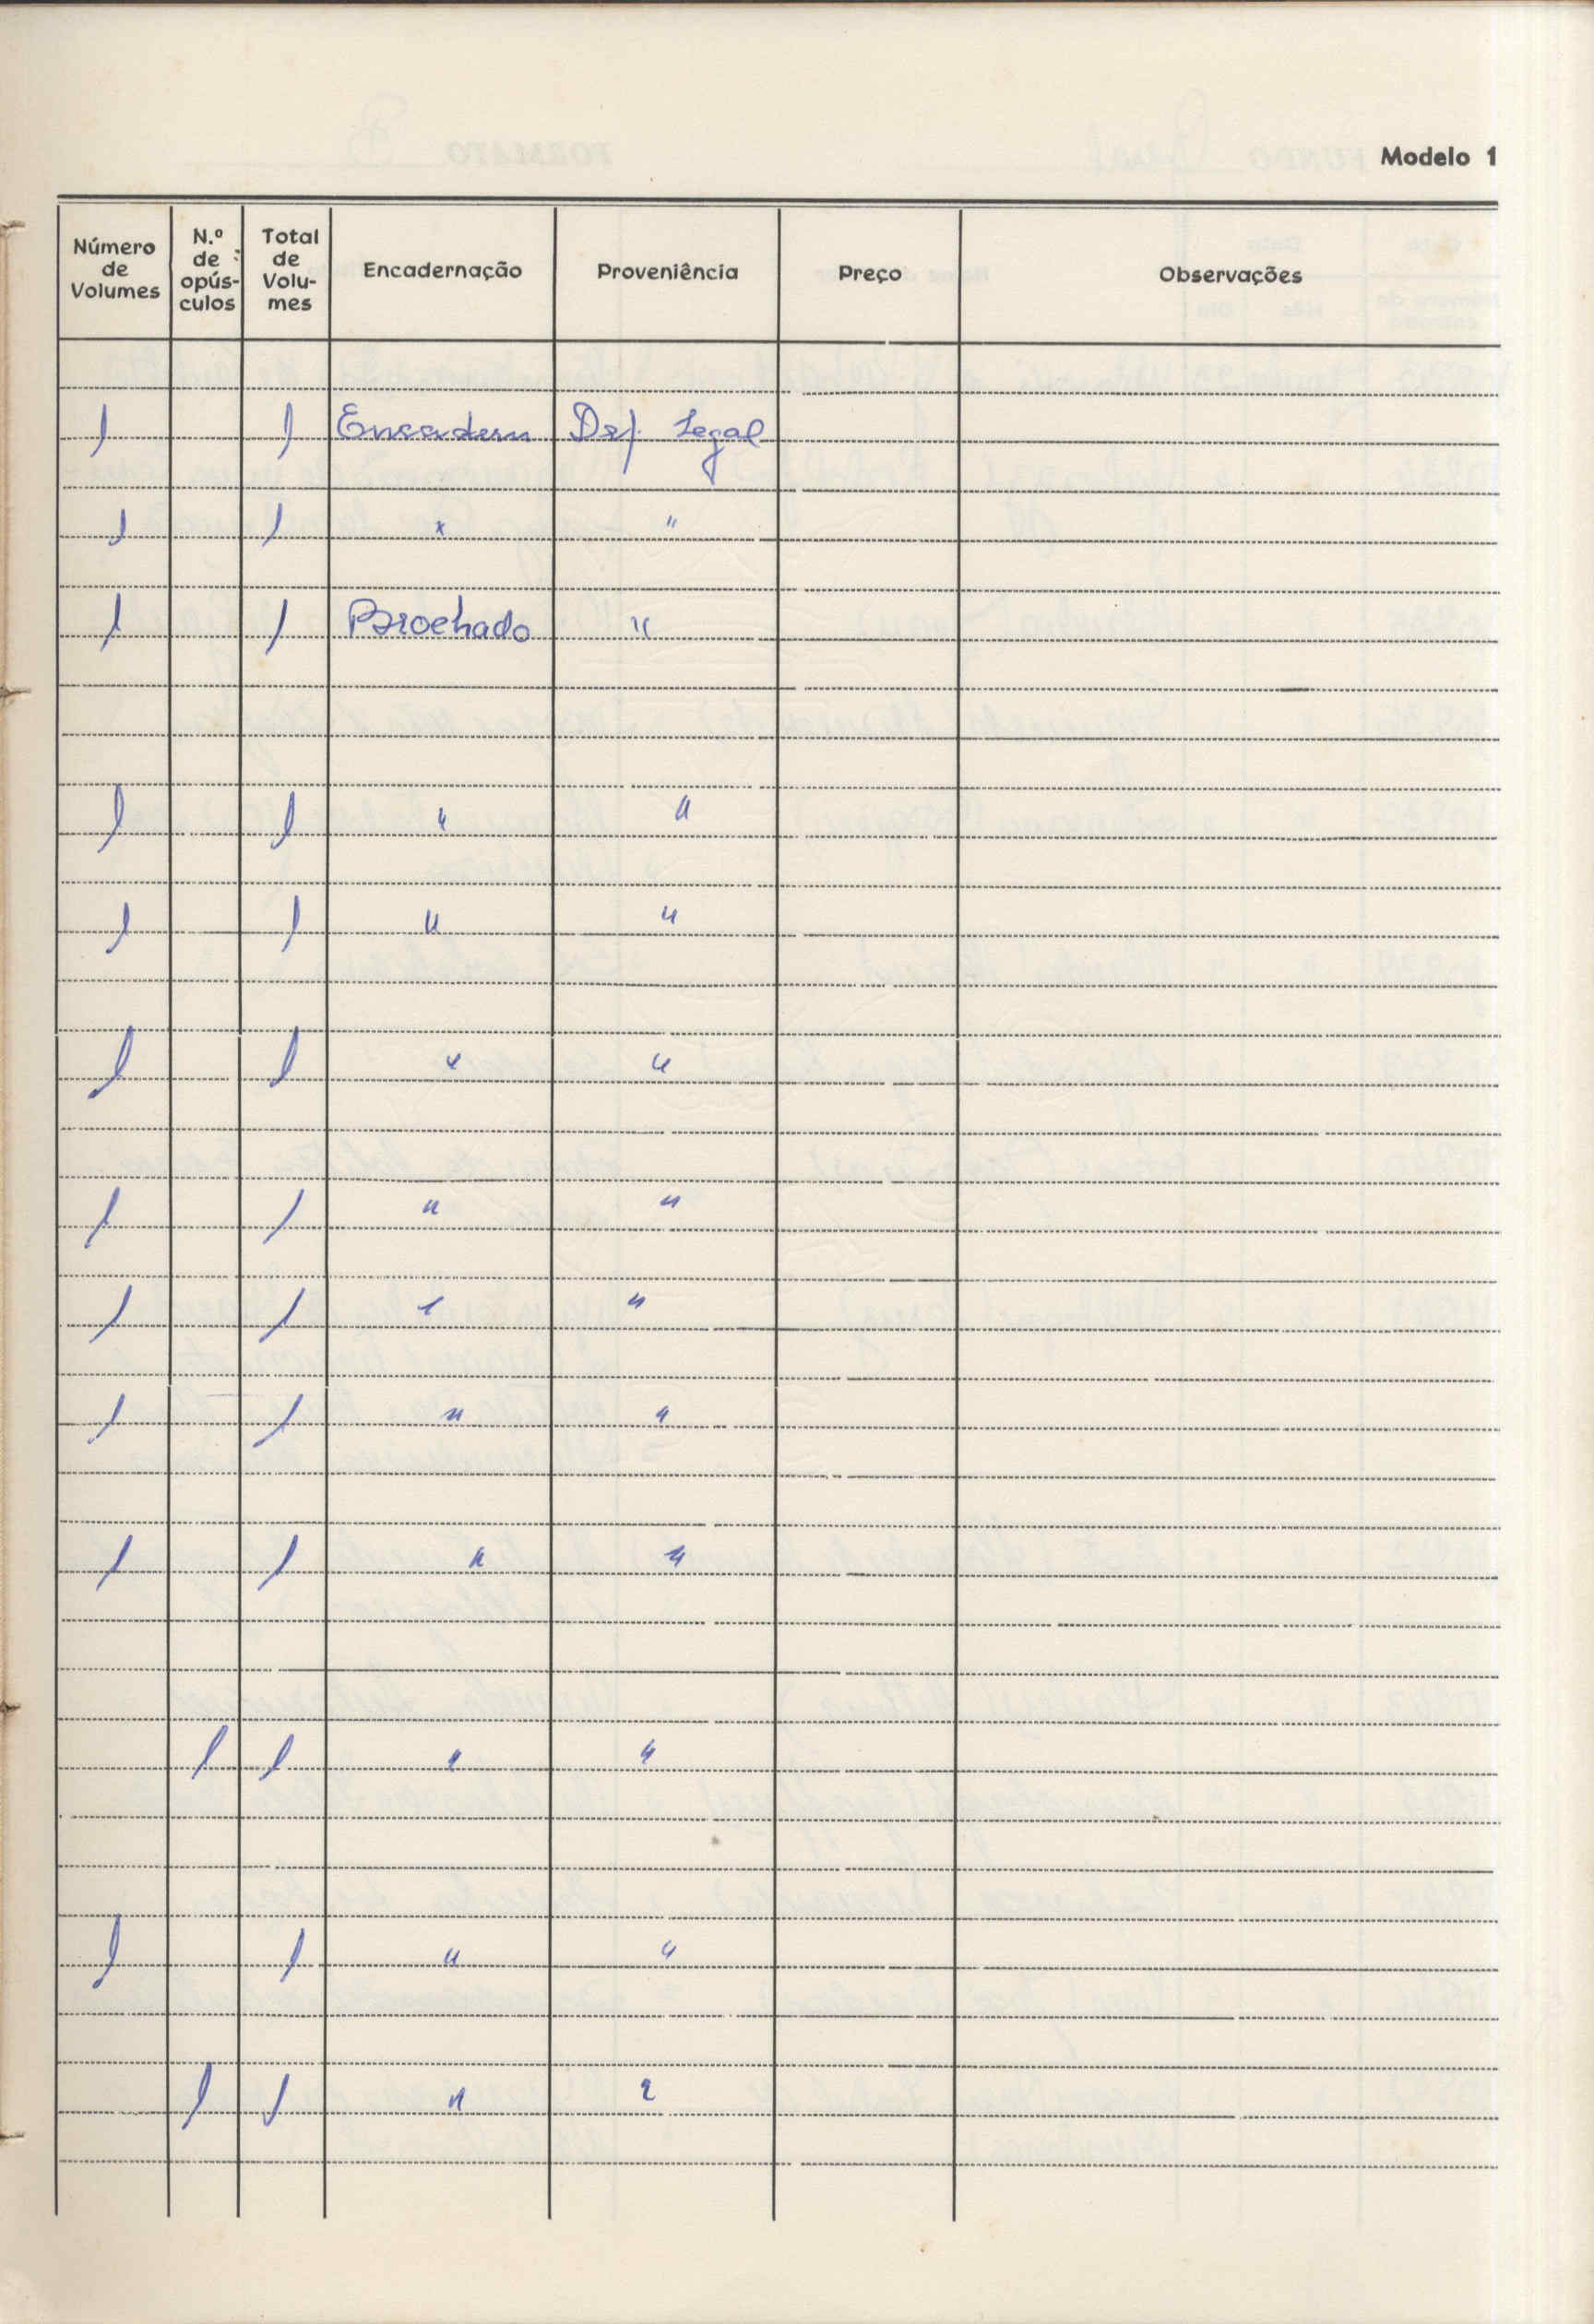 Modelo 1
Número de Volumes | N.º de opús-culos | Total de Volu-mes | Encadernação | Proveniência | Preço | Observações
1 | | 1 | Encadern | Dep. Legal
1 | | 1 | " | "
1 | | 1 | Brochado | "
1 | | 1 | " | "
1 | | 1 | " | "
1 | | 1 | " | "
1 | | 1 | " | "
1 | | 1 | " | "
1 | | 1 | " | "
1 | | 1 | " | "
| 1 | 1 | " | "
1 | | 1 | " | "
| 1 | 1 | " | "